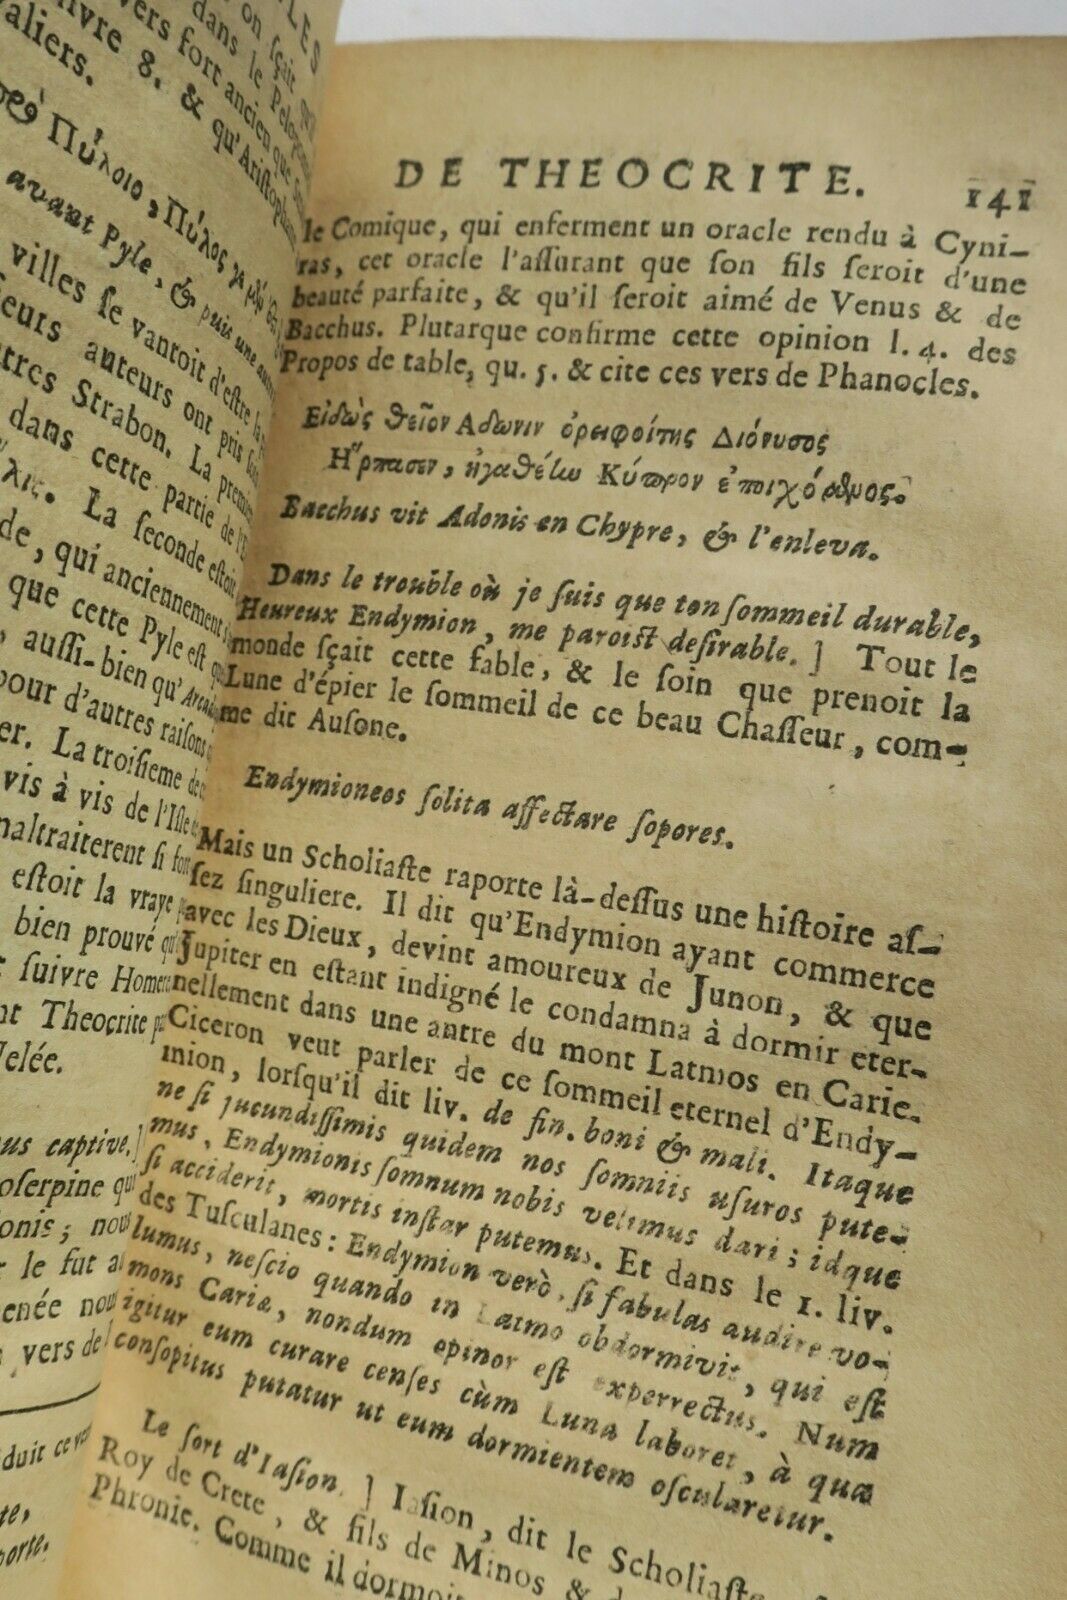 LES
on sçait
dans le Pelopon
vers fort ancien que
livre 8. & qu'Aristophane
valiers.
Πύλοιο, Πύλος
avant Pyle, & puis une autre
villes se vantoit d'estre la
sieurs auteurs ont pris
tres Strabon. La premiere
dans cette partie de l'E
λις. La seconde estoit
de, qui anciennement
que cette Pyle est
, aussi-bien qu'Arcad
pour d'autres raisons
er. La troisieme
vis à vis de l'Isle
maltraiterent si fort
estoit la vraye
bien prouvé qu
suivre Homere
nt Theocrite
us captive. ]
oserpine qui
onis; nou
le fut a
nous
vers de
duit ce vers
te,
porte.
DE THEOCRITE. 141
le Comique, qui enferment un oracle rendu à Cyni-
ras, cet oracle l'assurant que son fils seroit d'une
beauté parfaite, & qu'il seroit aimé de Venus & de
Bacchus. Plutarque confirme cette opinion l. 4. des
Propos de table, qu. 5. & cite ces vers de Phanocles.
Εἰδὼς θεῖον Αδωνιν ὀρειφοίτης Διόνυσος
Η῞ρπασεν, ἠγαθέἰω Κύπρον ἐποιχόμενος.
Bacchus vit Adonis en Chypre, & l'enleva.
Dans le trouble où je suis que ton sommeil durable,
Heureux Endymion, me paroist desirable. ] Tout le
monde sçait cette fable, & le soin que prenoit la
Lune d'épier le sommeil de ce beau Chasseur, com-
me dit Ausone.
Endymioneos solita affectare sopores.
Mais un Scholiaste raporte là-dessus une histoire as-
sez singuliere. Il dit qu'Endymion ayant commerce
avec les Dieux, devint amoureux de Junon, & que
Jupiter en estant indigné le condamna à dormir eter-
nellement dans une antre du mont Latmos en Carie.
Ciceron veut parler de ce sommeil eternel d'Endy-
mion, lorsqu'il dit liv. de fin. boni & mali. Itaque
ne si jucundissimis quidem nos somniis usuros pute-
mus, Endymionis somnum nobis velimus dari; idque
si acciderit, mortis instar putemus. Et dans le 1. liv.
des Tusculanes: Endymion verò, si fabulas audire vo-
lumus, nescio quando in Latmo obdormivit, qui est
mons Cariæ, nondum opinor est experrectus. Num
igitur eum curare censes cùm Luna laboret, à qua
consopitus putatur ut eum dormientem oscularetur.
Le sort d'Iasion. ] Iasion, dit le Scholiaste,
Roy de Crete, & fils de Minos &
Phronie. Comme il dormoit